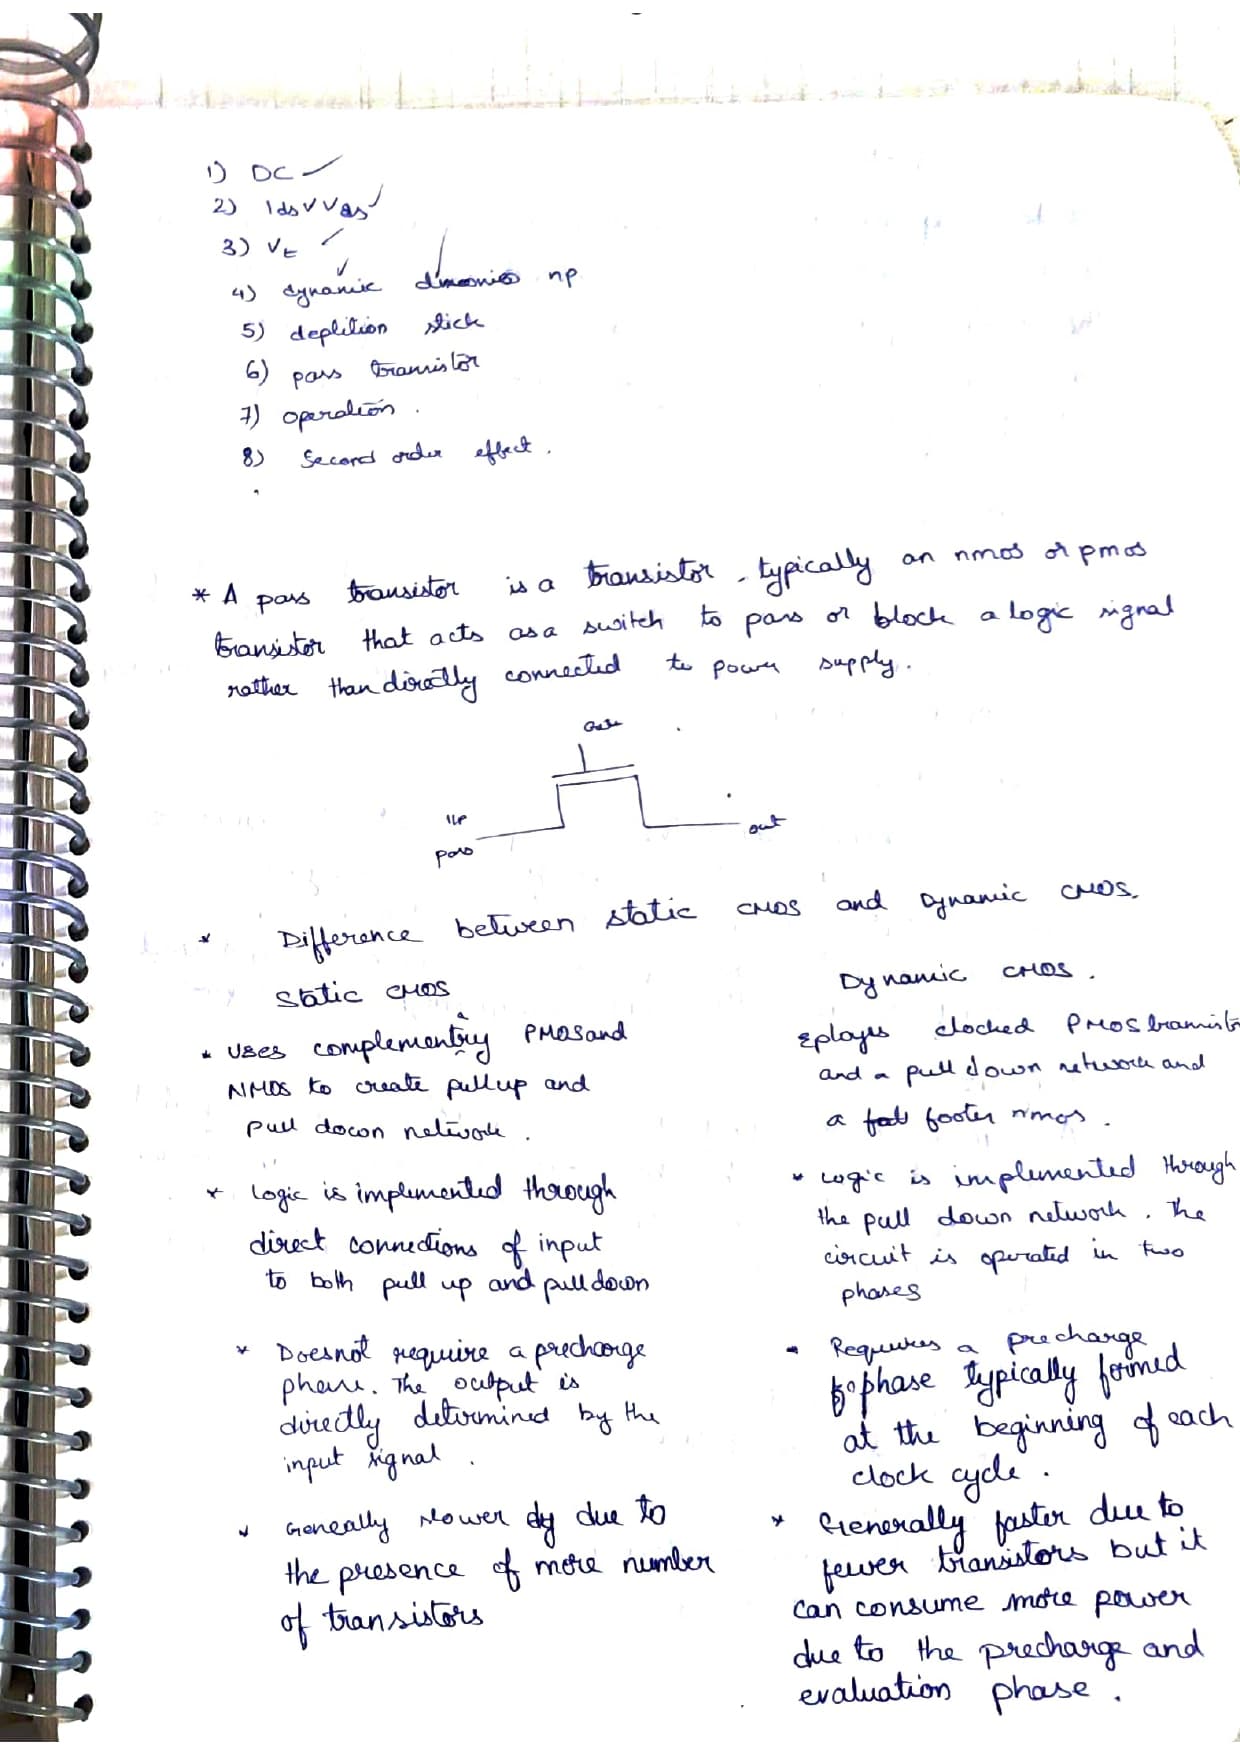 1) DC
2) Ids v Vds
3) Vt
4) dynamic np
5) deplition stick
6) pass transistor
7) operation .
8) Second order effect .
* A pass transistor is a transistor , typically an nmos or pmos
transistor that acts as a switch to pass or block a logic signal
rather than directly connected to power supply .
Gate
I/P
pass
out
* Difference between static CMOS and Dynamic CMOS.
Static CMOS
* Uses complementry PMOS and
NMOS to create pull up and
pull down network .
* Logic is implemented through
direct connections of input
to both pull up and pull down
* Doesnot require a precharge
phase. The output is
directly determined by the
input signal .
* Geneally slower due to
the presence of more number
of transistors
Dynamic CMOS .
Eployes clocked PMOS transistor
and a pull down network and
a footer nmos .
* Logic is implemented through
the pull down network . The
circuit is operated in two
phases
* Requires a precharge
phase typically formed
at the beginning of each
clock cycle .
* Generally faster due to
fewer transistors but it
can consume more power
due to the precharge and
evaluation phase .